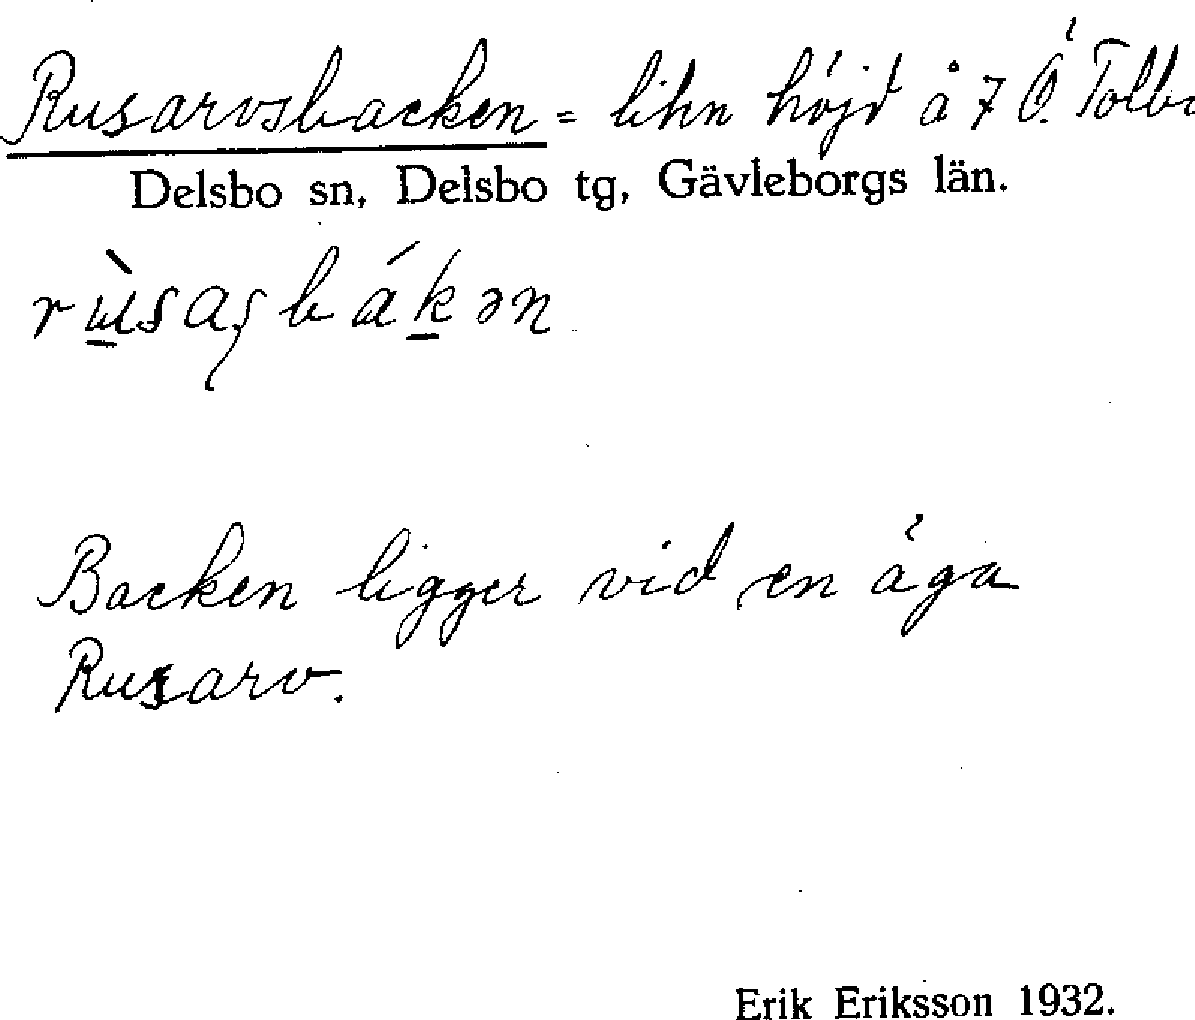 Rusarvsbacken = liten höjd å 7 Ö. Tolbo
Delsbo sn, Delsbo tg, Gävleborgs län.
Backen ligger vid en äga
Rusarv.
Erik Eriksson 1932.